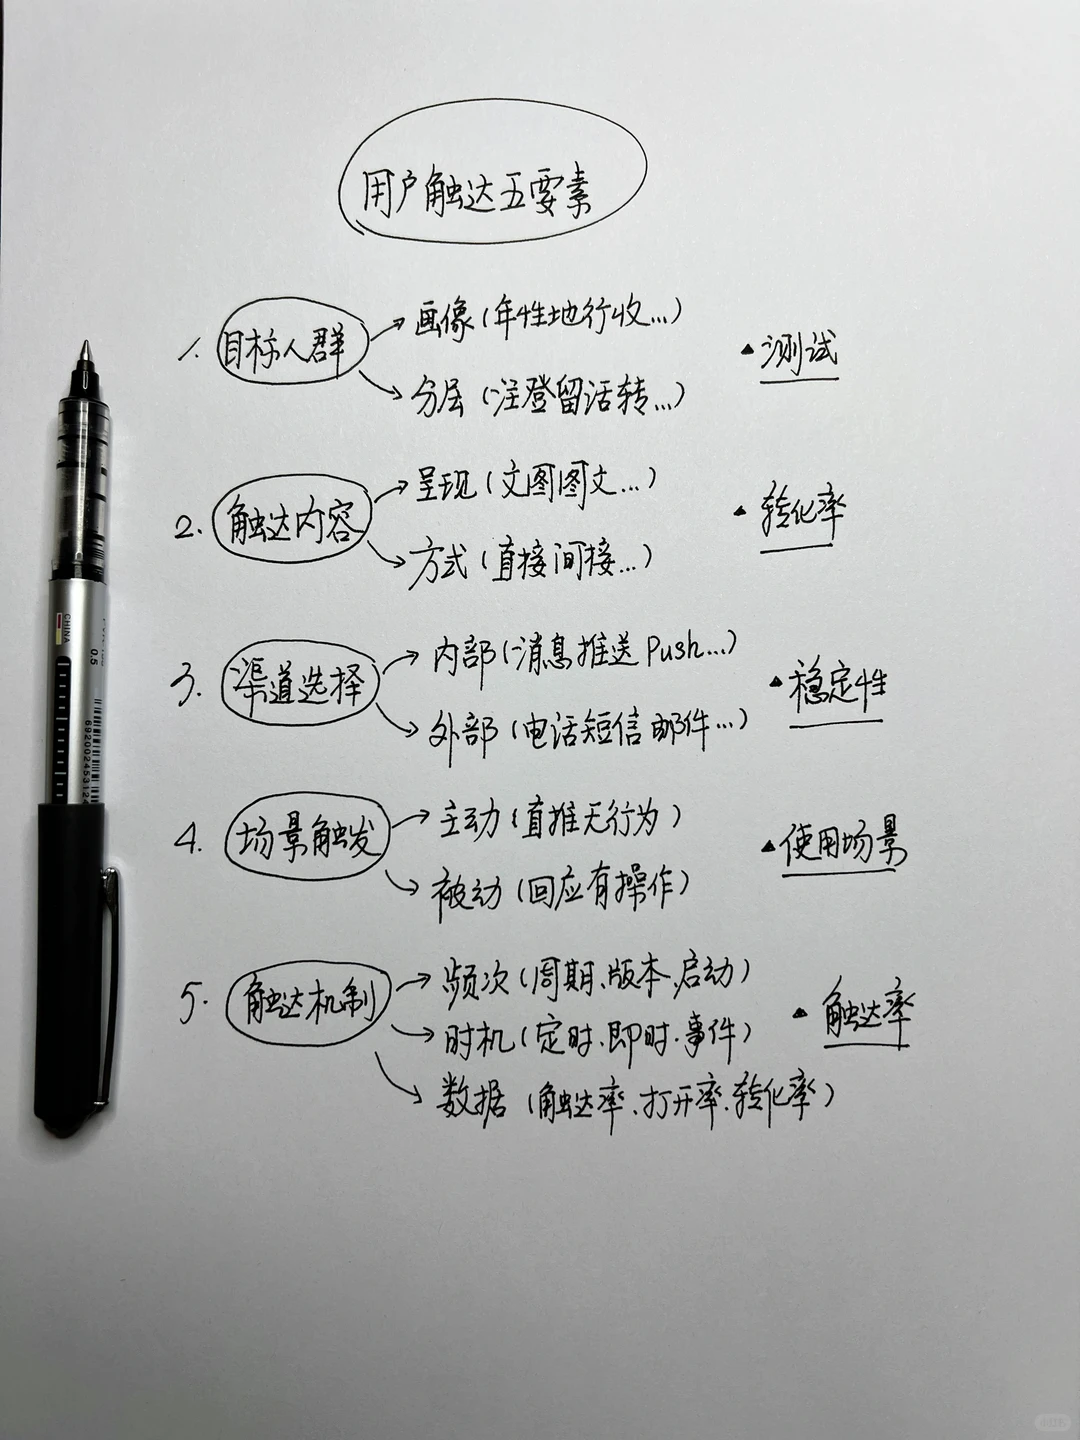 用户触达五要素
1. 目标人群
画像(年性地行收...)
分层(注登留活转...)
▲测试
2. 触达内容
呈现(文图图文...)
方式(直接间接...)
▲转化率
3. 渠道选择
内部(消息推送Push...)
外部(电话短信邮件...)
▲稳定性
4. 场景触发
主动(直推无行为)
被动(回应有操作)
▲使用场景
5. 触达机制
频次(周期、版本、启动)
时机(定时、即时、事件)
数据(触达率、打开率、转化率)
▲触达率
CHINA
0.5
小红书